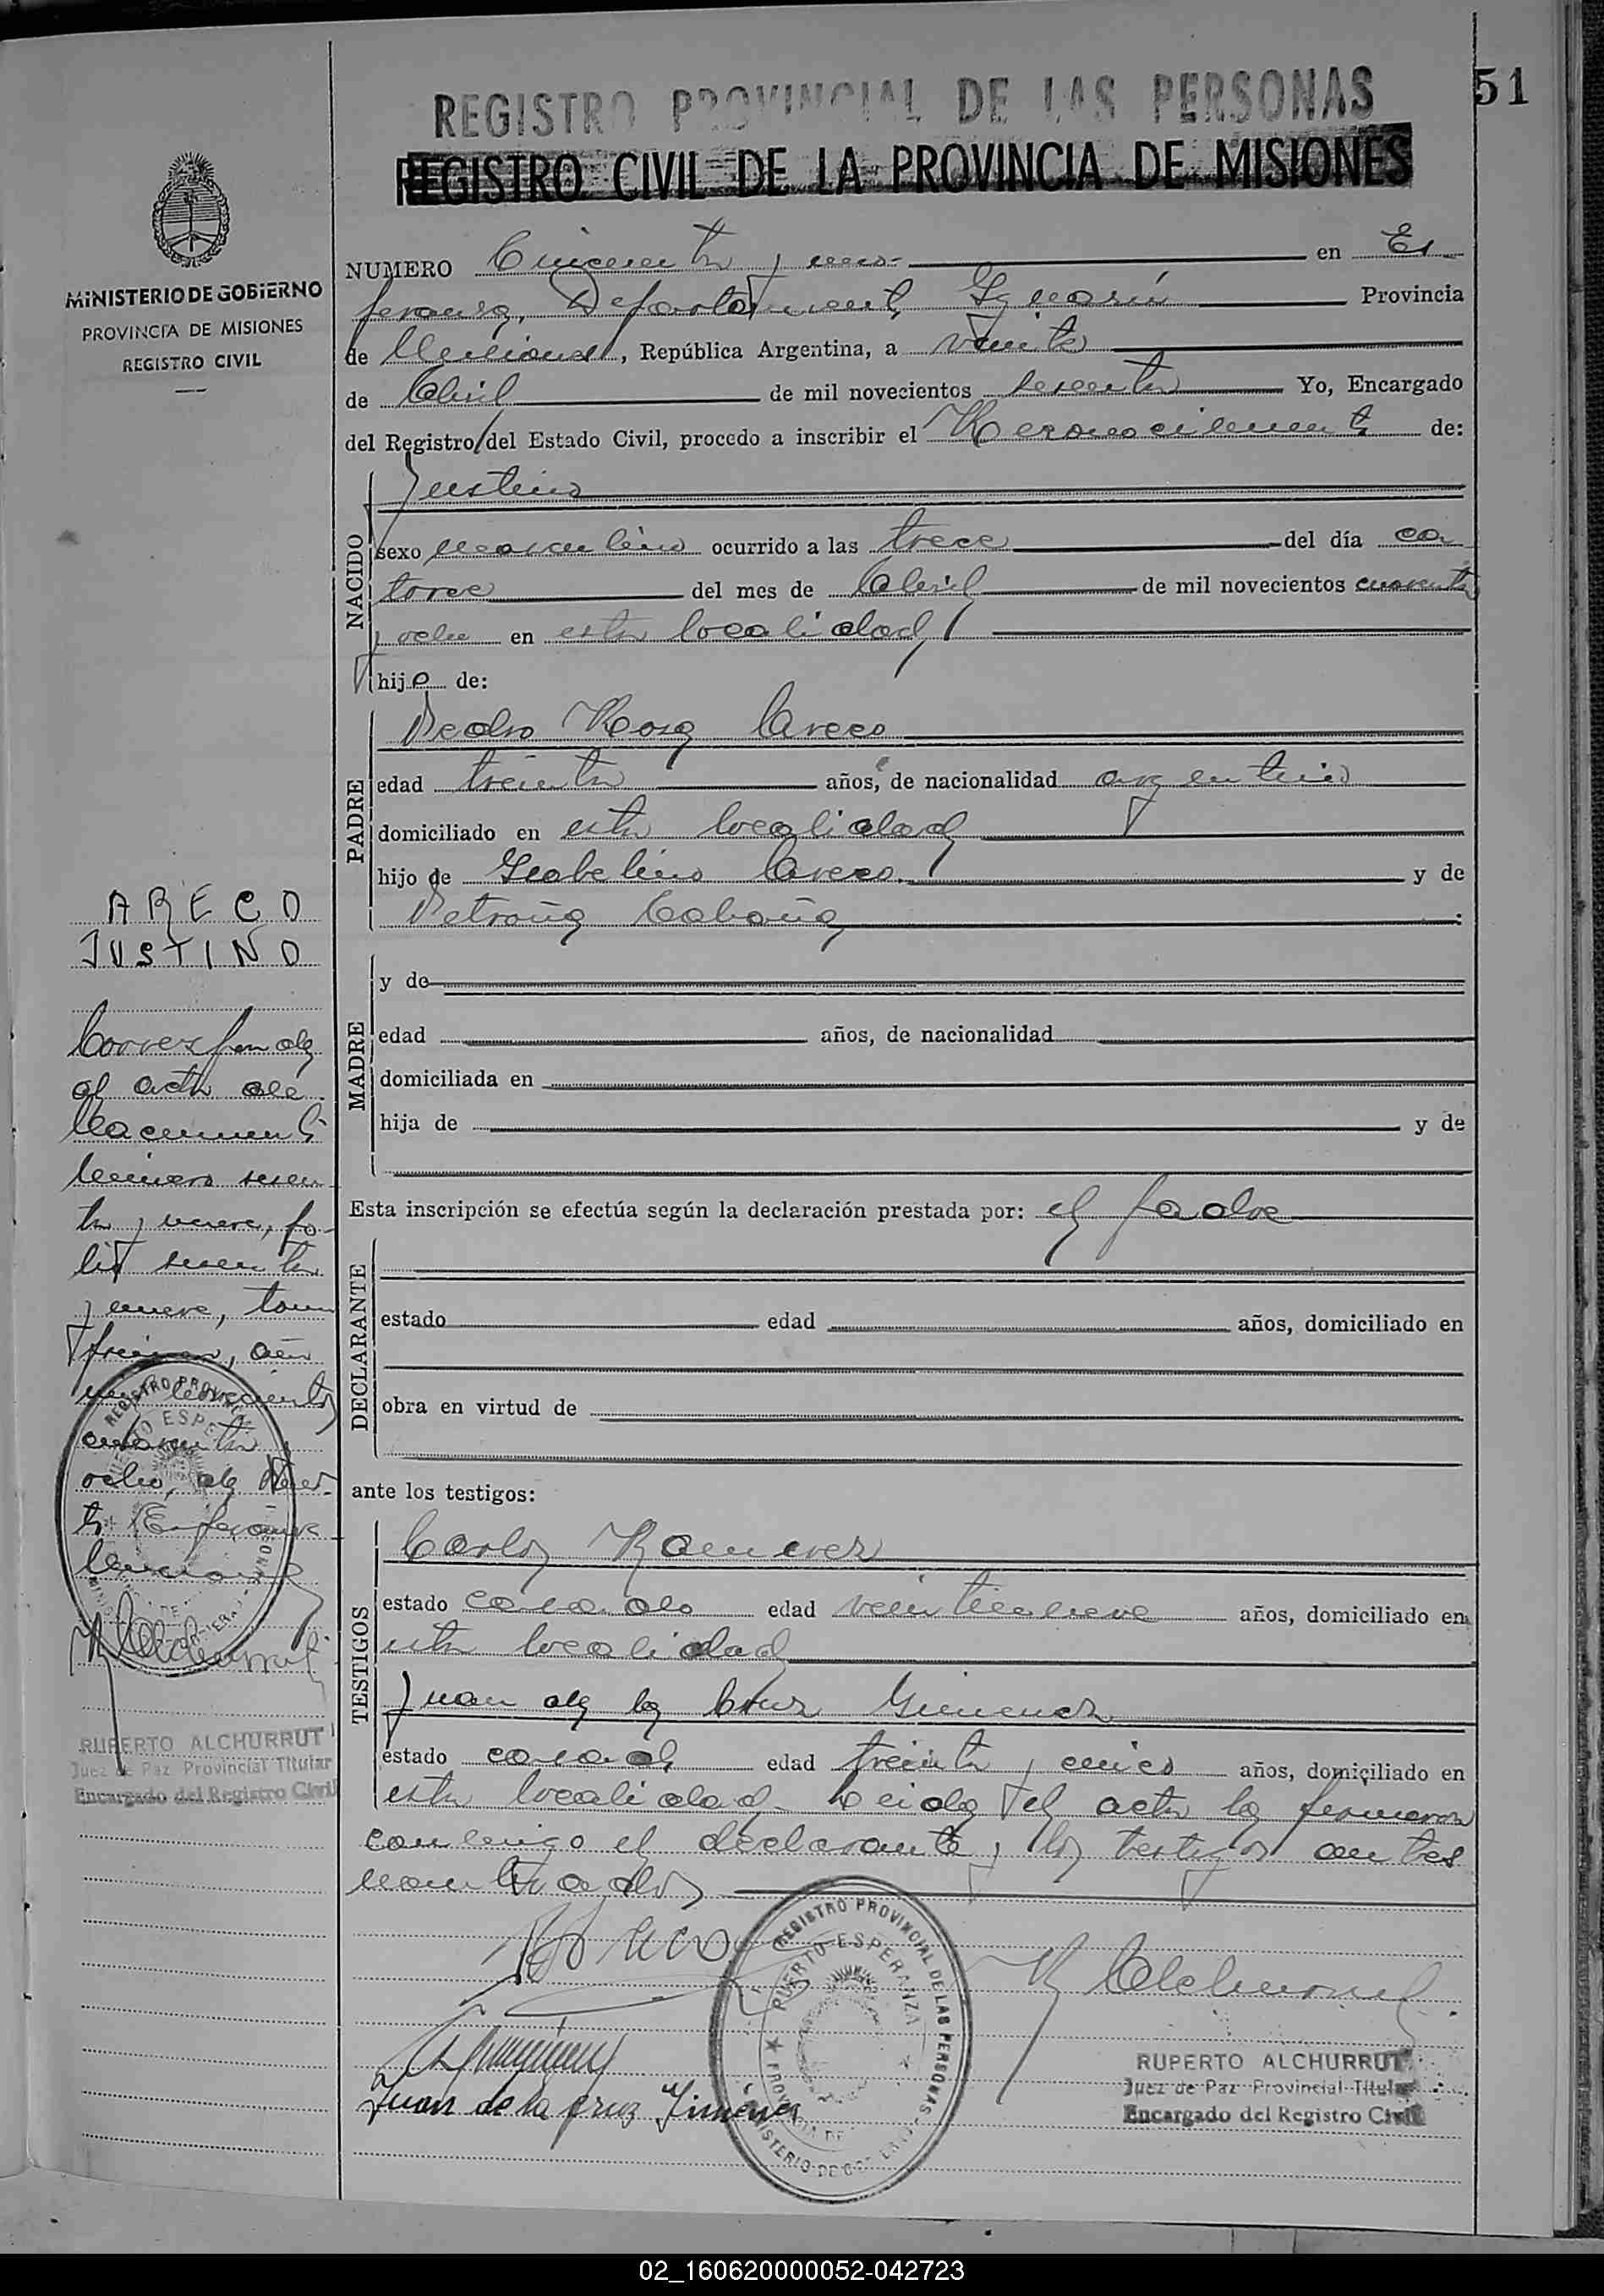 51
REGISTRO PROVINCIAL DE LAS PERSONAS
REGISTRO CIVIL DE LA PROVINCIA DE MISIONES
MINISTERIO DE GOBIERNO
PROVINCIA DE MISIONES
REGISTRO CIVIL
NUMERO Cincuenta y uno en Es
peranza, Departamento Iguazú Provincia
de Misiones, República Argentina, a veinte
de Abril de mil novecientos sesenta Yo, Encargado
del Registro del Estado Civil, procedo a inscribir el Reconocimiento de:
Justino
NACIDO
sexo masculino ocurrido a las trece del día ca
torce del mes de Abril de mil novecientos cuarenta
y ocho en esta localidad
hijo de:
PADRE
Pedro Rosa Areco
edad treinta años, de nacionalidad argentino
domiciliado en esta localidad
hijo de Isabelino Areco y de
Petrona Cabaña
MADRE
y de
edad años, de nacionalidad
domiciliada en
hija de y de
Esta inscripción se efectúa según la declaración prestada por: el padre
DECLARANTE
estado edad años, domiciliado en
obra en virtud de
ante los testigos:
TESTIGOS
Carlos Ramirez
estado casado edad veintinueve años, domiciliado en
esta localidad
Juan de la Cruz Gimenez
estado casado edad treinta y cinco años, domiciliado en
esta localidad. Leida el acta la firmaron
conmigo el declarante y los testigos antes
nombrados
Juan de la Cruz Jiménez
REGISTRO PROVINCIAL DE LAS PERSONAS
PUERTO ESPERANZA
MINISTERIO DE GOBIERNO
R Alchurrut
RUPERTO ALCHURRUT
Juez de Paz Provincial Titular
Encargado del Registro Civil
ARECO
JUSTINO
Corresponde
al acta de
Nacimiento
número sesen
ta y nueve, fo-
lio sesenta
y nueve, tomo
primero, año
mil novecientos
cuarenta y
ocho, de Puer-
to Esperanza
Misiones
R Alchurrut
RUPERTO ALCHURRUT
Juez de Paz Provincial Titular
Encargado del Registro Civil
02_160620000052-042723